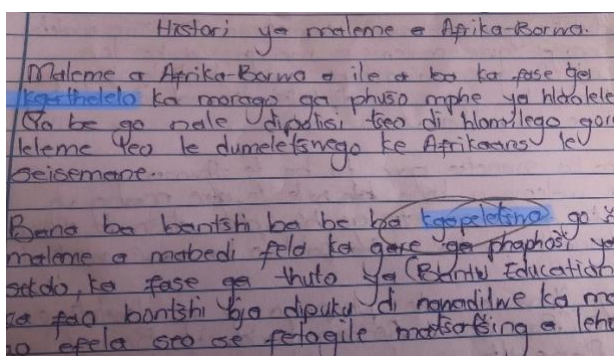 Histori ya maleme a Afrika-Borwa.
Maleme a Afrika-Borwa a ile a ba ka fase ga
kgathelelo ka morago ga phuso mphe ya
Go be go nale dipolisi tseo di hlomilego gore
leleme leo le dumeletsnego ke Afrikaans le
seisemane.
Bana ba bantshi ba be ba kgapeletsna go
maleme a mabedi fela ka gare ga phaphosi
sekolo, ka fase ga thuto ya (Bantu Education
bantshi dipuku di ngwadilwe ka
efela seo se fetogile matsatsing a